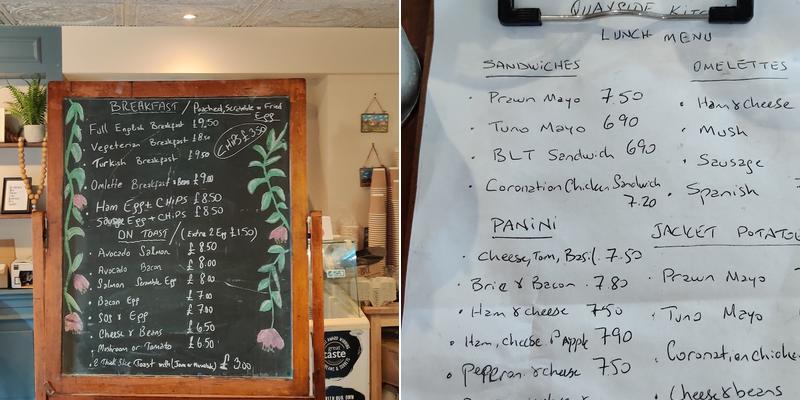 BREAKFAST / Poached, Scramble or Fried Egg
Full English Breakfast £9.50
Vegeterian Breakfast £8.50
Turkish Breakfast £9.50
CHIPS £3.50
Omlette Breakfast + Beans £9.00
Ham Egg + CHiPS £8.50
Sausage Egg + CHiPS £8.50
ON TOAST / (Extra 2 Egg £1.50)
Avocado Salmon £8.50
Avocado Bacon £8.00
Salmon Scramble Egg £8.00
Bacon Egg £7.00
Sos & Egg £7.00
Cheese & Beans £6.50
Mushroom or Tomato £6.50
2 Thick Slice Toast with (Jam or Marmalade) £3.00
taste
QUAYSIDE
LUNCH MENU
SANDWICHES
Prawn Mayo 7.50
Tuno Mayo 6.90
BLT Sandwich 6.90
Coronation Chicken Sandwich
7.20
PANINI
Cheese, Tom, Basil. 7.50
Brie & Bacon. 7.80
Ham & cheese 7.50
Ham, cheese P.Apple 7.90
Pepperoni & cheese 7.50
OMELETTES
Ham & cheese
Mush
Sausage
Spanish
JACKET POTATO
Prawn Mayo
Tuno Mayo
Coronation chicke
Cheese & beans